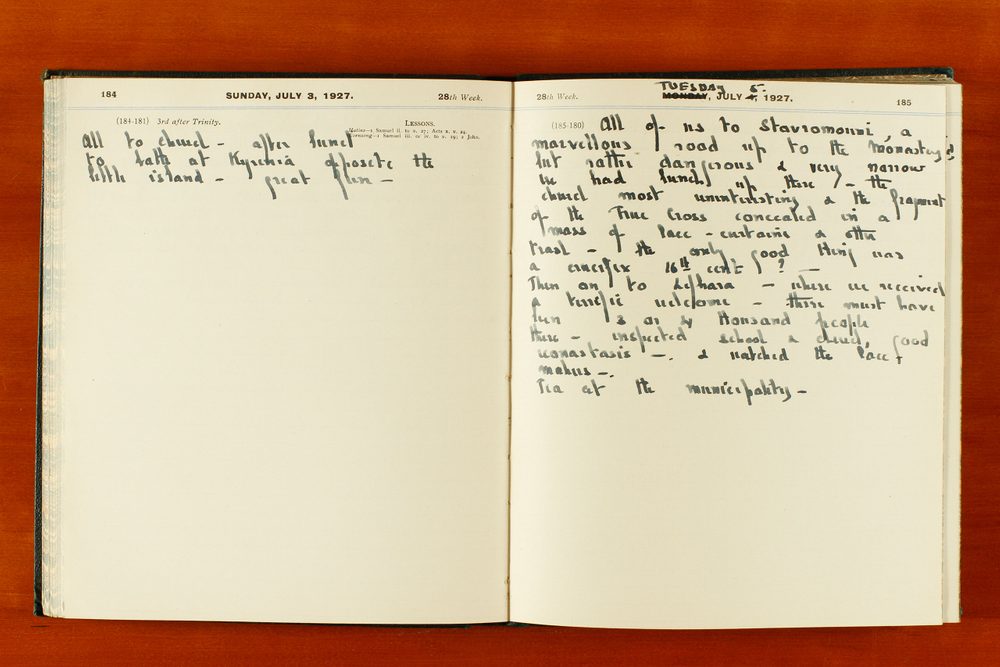 184
SUNDAY, JULY 3, 1927.
28th Week.
(184-181) 3rd after Trinity.
LESSONS.
Matins—1 Samuel ii. to v. 27; Acts x. v. 24.
Evensong—1 Samuel iii. or iv. to v. 19; 1 John.
All to church – after lunch
to bathe at Kyrenia opposite the
little island – great fun –
28th Week.
TUESDAY 5.
MONDAY, JULY 4, 1927.
185
(185-180)
All of us to Stavromouni, a
marvellous road up to the monastery
but rather dangerous & very narrow
We had lunch up there – the
church most uninteresting & the fragment
of the True Cross concealed in a
mass of lace – curtains & other
trash – the only good thing was
a crucifix 16th cent ? –
Then on to Lefkara – where we received
a terrific welcome – there must have
been 3 or 4 thousand people
there – inspected school & church, good
iconastasis –. & watched the lace
makers –.
Tea at the municipality –